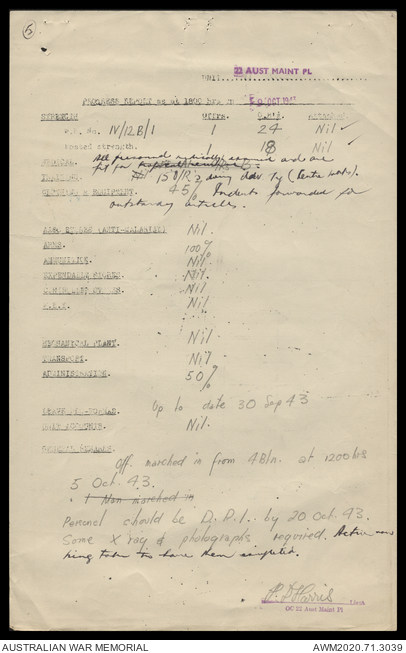 5
UNIT 22 AUST MAINT PL
PROGRESS REPORT as at 1800 hrs on 5 OCT. 1943
STRENGTH OFFRS. O.R'S. ATTACHED.
W.E. No. IV/12.B/1 1 24 Nil
Posted strength. 1 18 Nil
MEDICAL. All personnel medically examined and are
fit for
TRAINING. 15 O/Rs doing
CLOTHING & EQUIPMENT. 45% Indents forwarded for
outstanding articles.
ALSO STORES (ANTI-MALARIAL) Nil.
ARMS. 100%
AMMUNITION. Nil.
EXPENDABLE STORES. Nil.
Nil.
Nil
MECHANICAL PLANT. Nil.
TRANSPORT. Nil
ADMINISTRATION. 50%
Up to date 30 Sep 43
Nil.
GENERAL REMARKS.
Off. marched in from 4 Bln. at 1200 hrs
5 Oct. 43.
1 Man marched in
Personal should be D.P.1. by 20 Oct. 43.
Some X ray & photographs required. Action now
being taken to have them completed.
H. D. Harris Lieut.
OC 22 Aust Maint Pl
AUSTRALIAN WAR MEMORIAL AWM2020.71.3039